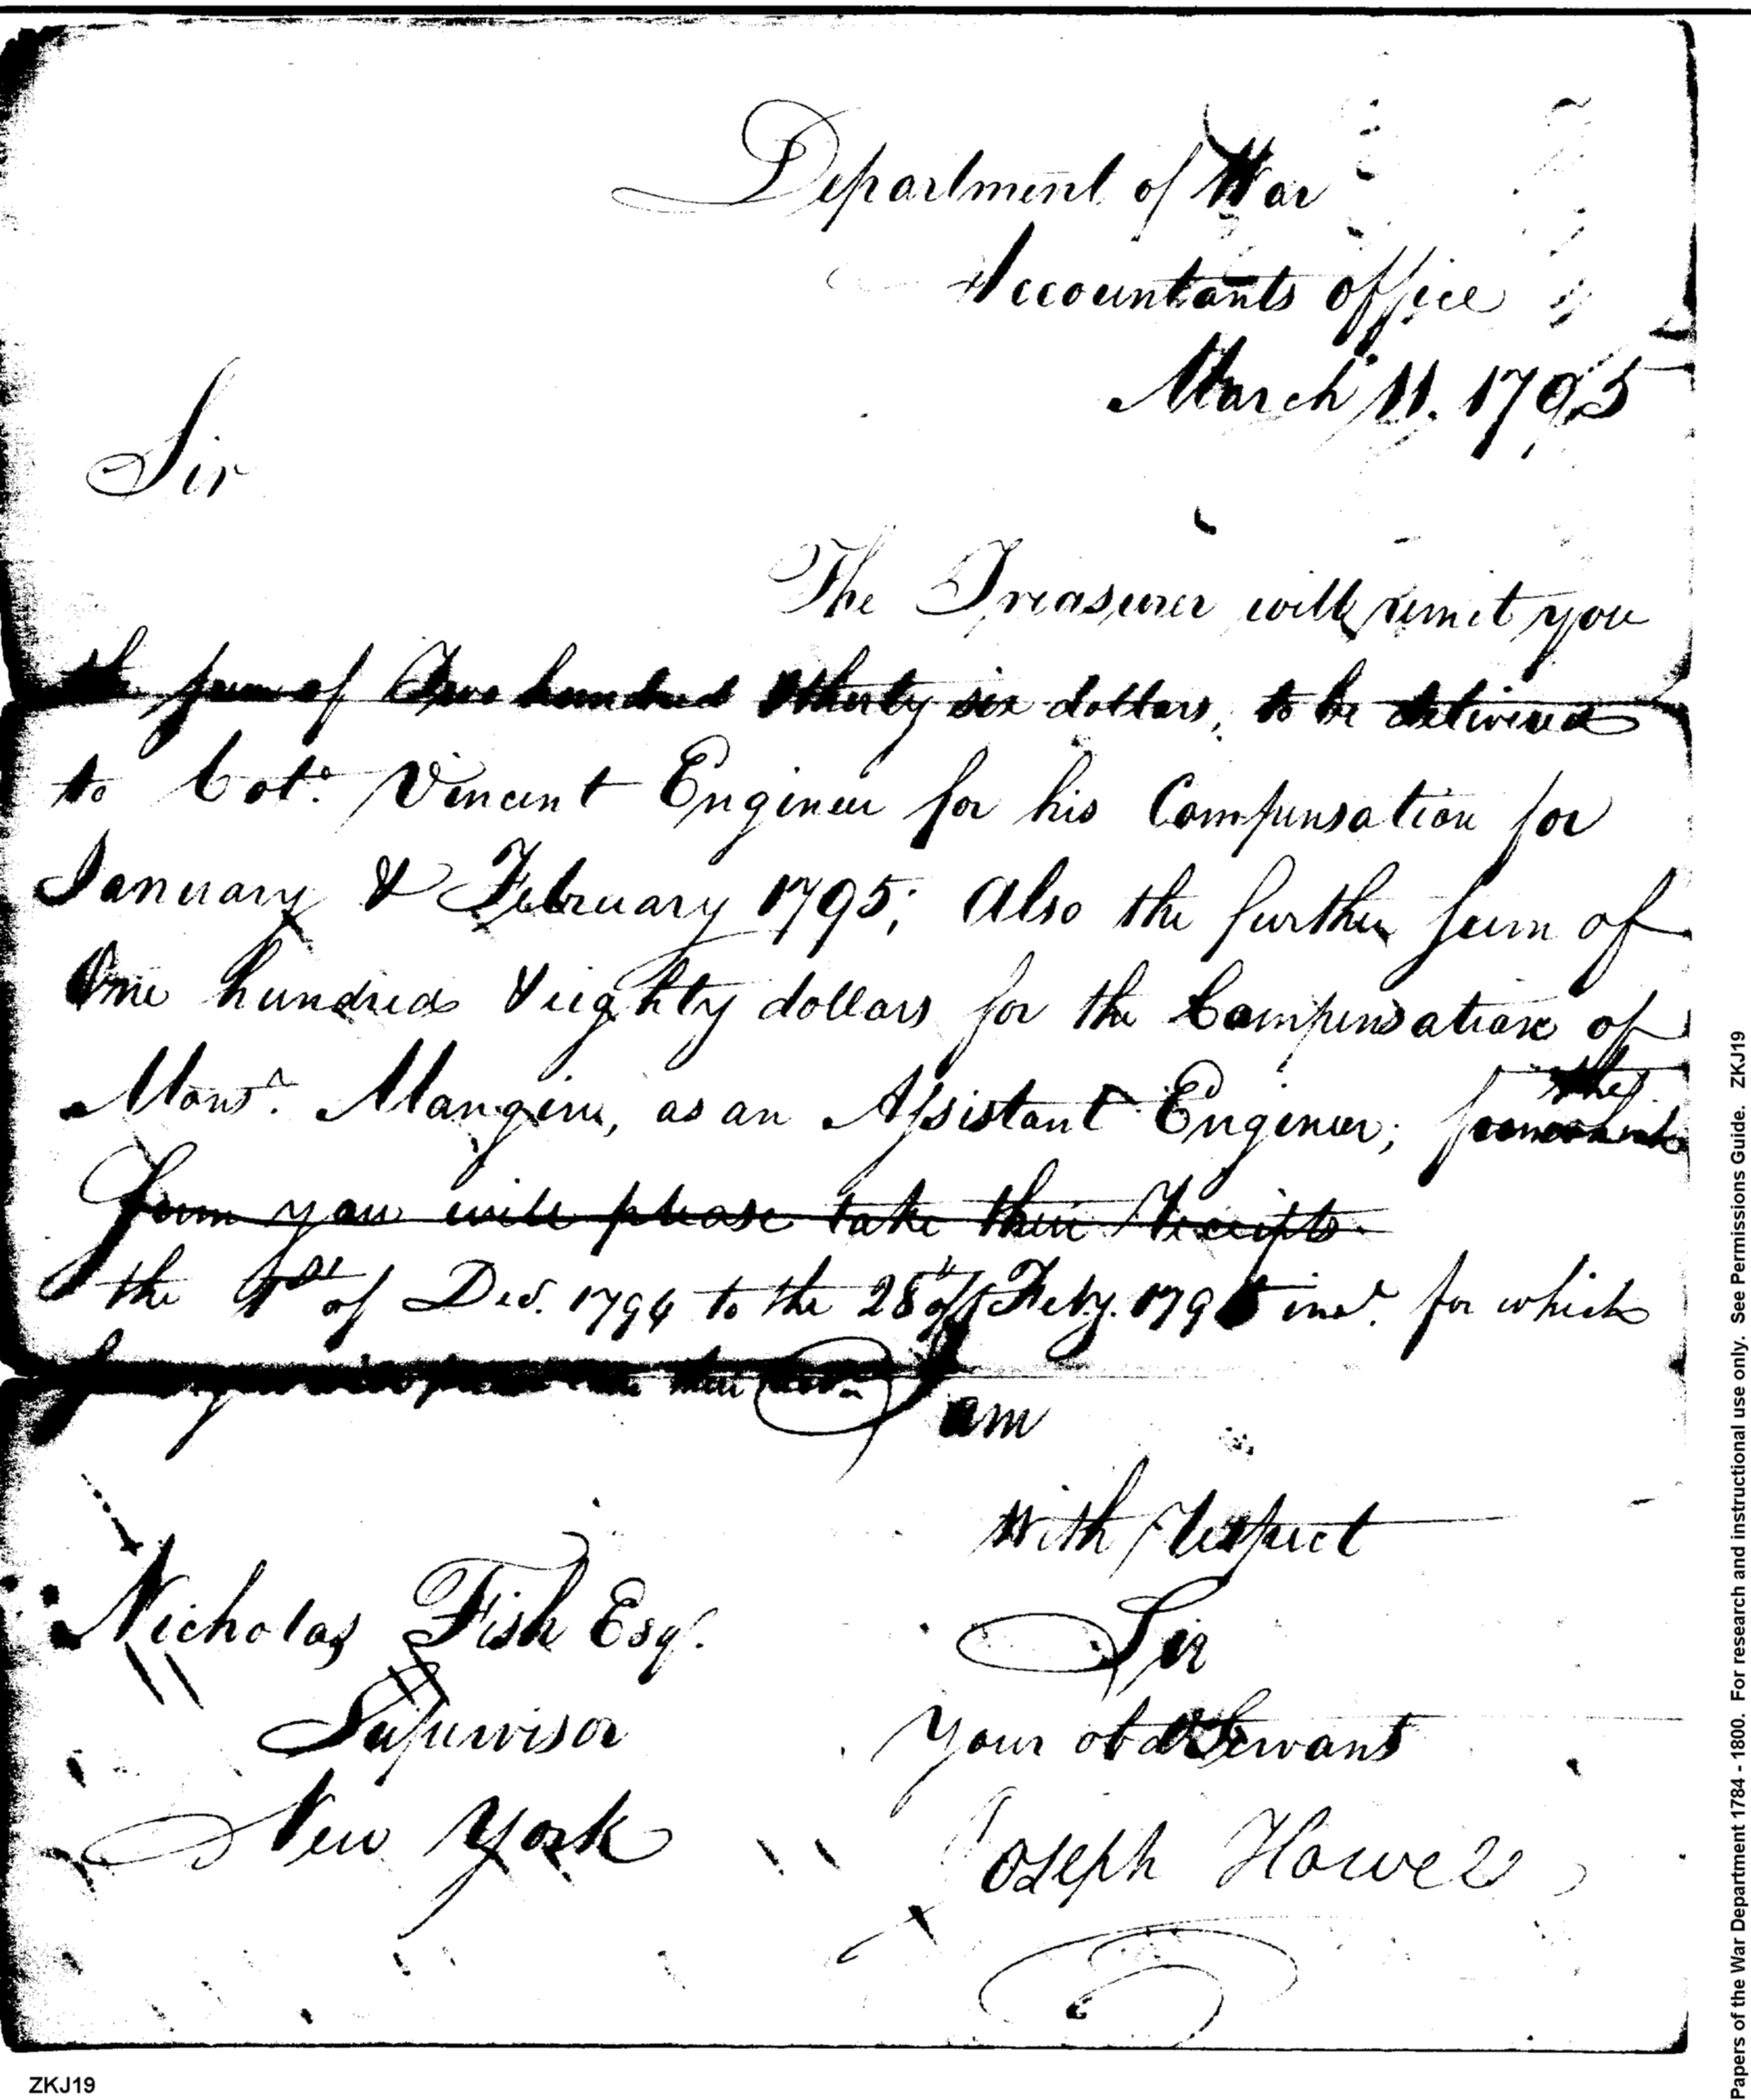 Department of War
Accountants office
March 11. 1795
Sir
The Treasurer will remit you
the sum of Two hundred & thirty six dollars, to be delivered
to Colo. Vincent Engineer for his Compensation for
January & February 1795; Also the further sum of
One hundred & eighty dollars for the Compensation of
Monsr. Mangin, as an Assistant Engineer; from
the
from you will please take their Receipts
the 1st of Dec. 1794 to the 28th of Feby. 1795 incl. for which
you will please take their
I am
with respect
Sir
Your obd Servant
Joseph Howell
Nicholas Fish Esqr.
Supervisor
New York
ZKJ19
Papers of the War Department 1784 - 1800. For research and instructional use only. See Permissions Guide. ZKJ19